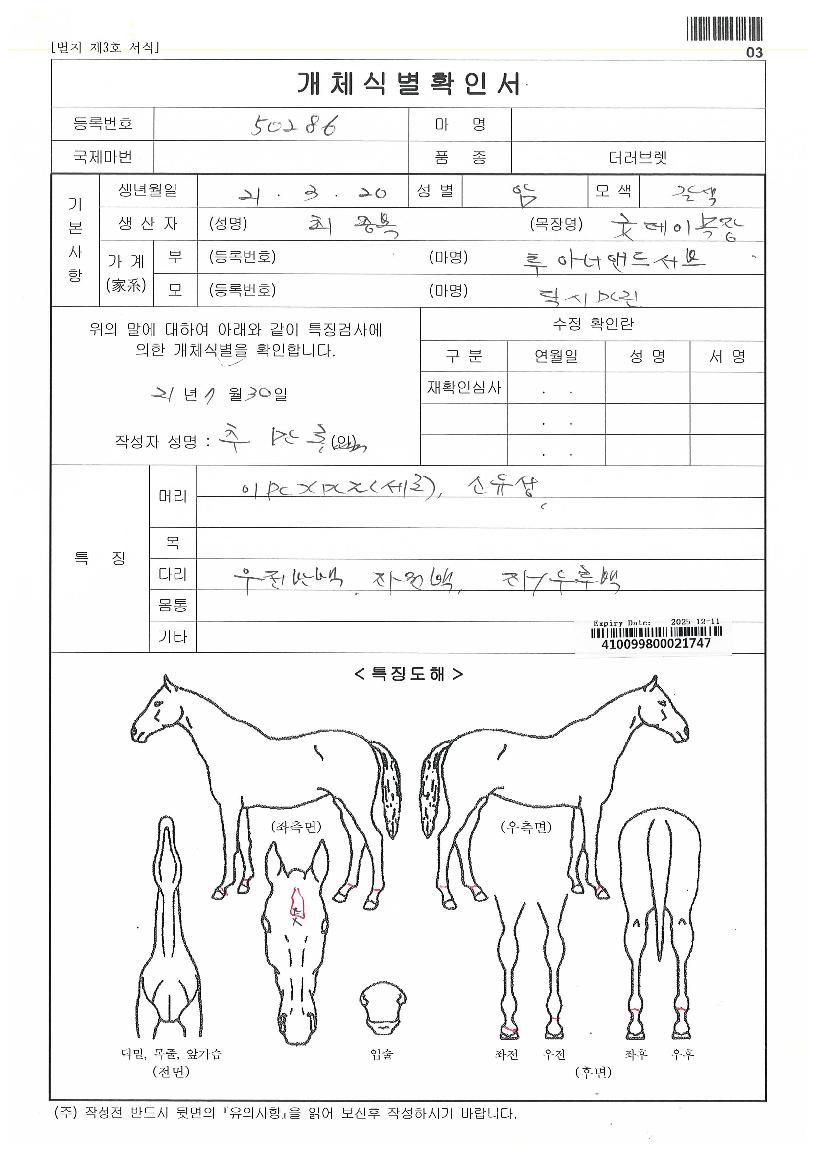 [별지 제3호 서식]
03
개체식별확인서
등록번호 50286 마 명
국제마번 품 종 더러브렛
기본사항
생년월일 21 . 3 . 20 성 별 암 모 색 갈색
생 산 자 (성명) 최 종욱 (목장명) 굿데이목장
가 계 (家系) 부 (등록번호) (마명) 투아너앤드서브
모 (등록번호) (마명) 럭시
위의 말에 대하여 아래와 같이 특징검사에
의한 개체식별을 확인합니다.
21 년 7 월 30 일
작성자 성명 : (인)
수정 확인란
구 분 연월일 성 명 서 명
재확인심사 . .
. .
. .
특 징
머리 (세로),
목
다리 우전반백, 좌전백, 좌우후백
몸통
기타
Expiry Date: 2025-12-11
410099800021747
< 특징도해 >
(좌측면) (우측면)
턱밑, 목줄, 앞가슴 입술 좌전 우전 좌후 우후
(전면) (후면)
(주) 작성전 반드시 뒷면의 『유의사항』을 읽어 보신후 작성하시기 바랍니다.